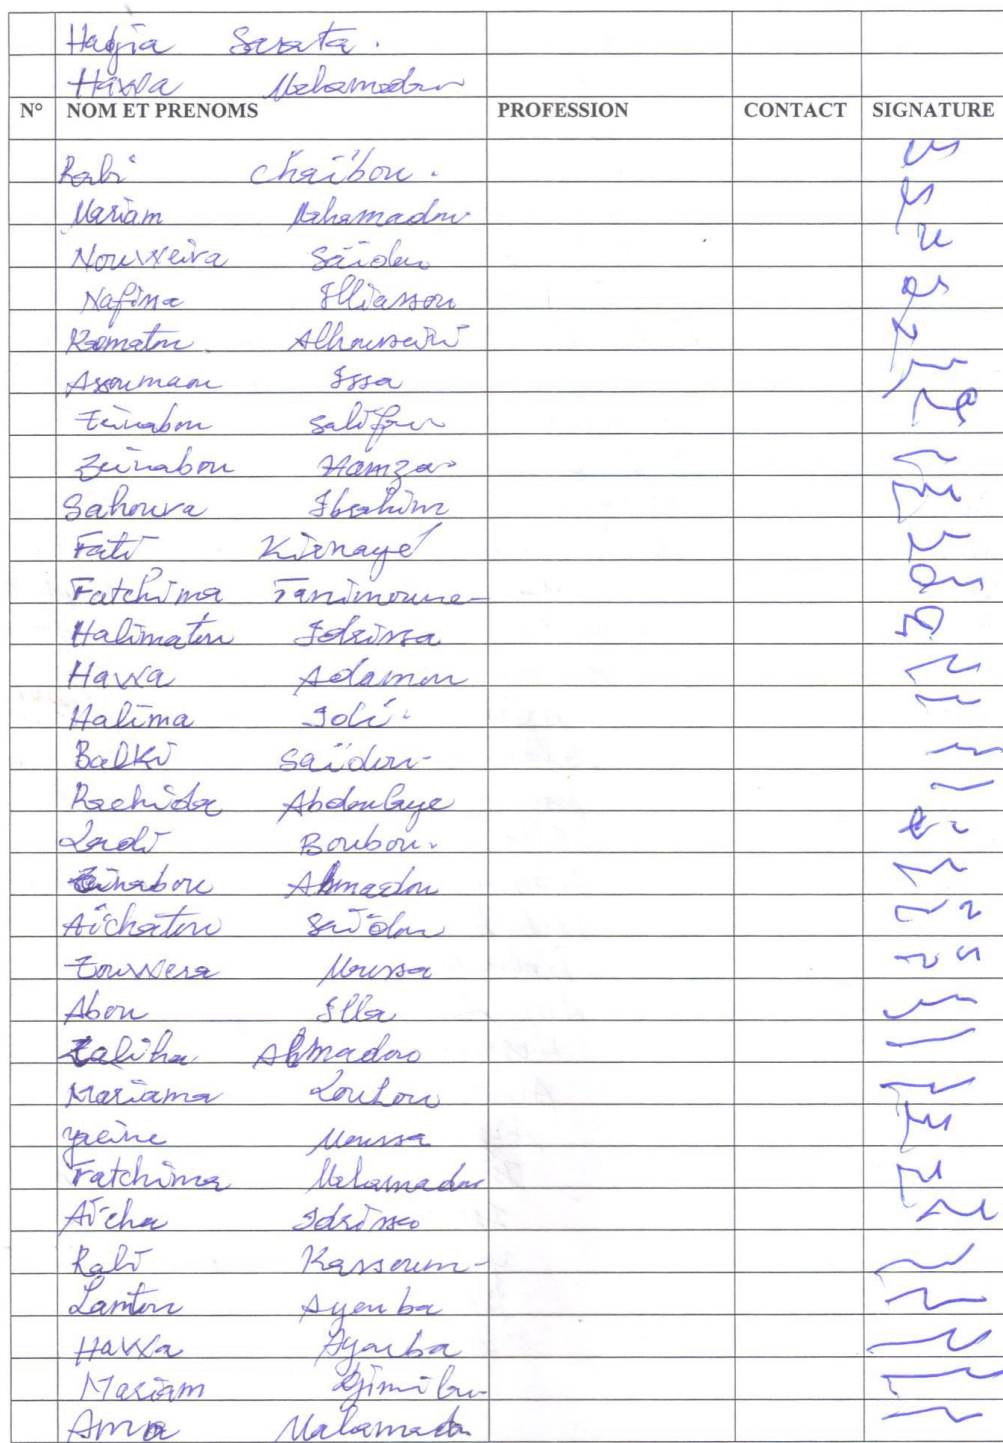 Hadjia Sarata.
Hawa Mahamadou
N° NOM ET PRENOMS PROFESSION CONTACT SIGNATURE
Rabi Chaïbou.
Mariam Mahamadou
Nouweira Saïdou
Nafissa Illiassou
Ramatou Alhousseini
Assoumaou Issa
Zeinabou Salifou
Zeinabou Hamza
Sahoura Ibrahim
Fati Kimayé
Fatchima Tanimoune
Halimatou Idrissa
Hawa Adamou
Halima Idi.
Balki Saïdou
Rachida Abdoulaye
Ladi Boubou.
Zeinabou Ahmadou
Aïchatou Saïdou
Zouwera Moussa
Abou Illa
Zaliha Ahmadou
Mariama Louhou
Yacine Moussa
Fatchima Mahamadou
Aïcha Idrissa
Rabi Kassoum
Lantou Ayouba
Hawa Ayouba
Mariam Djimibou
Amna Mahamadou